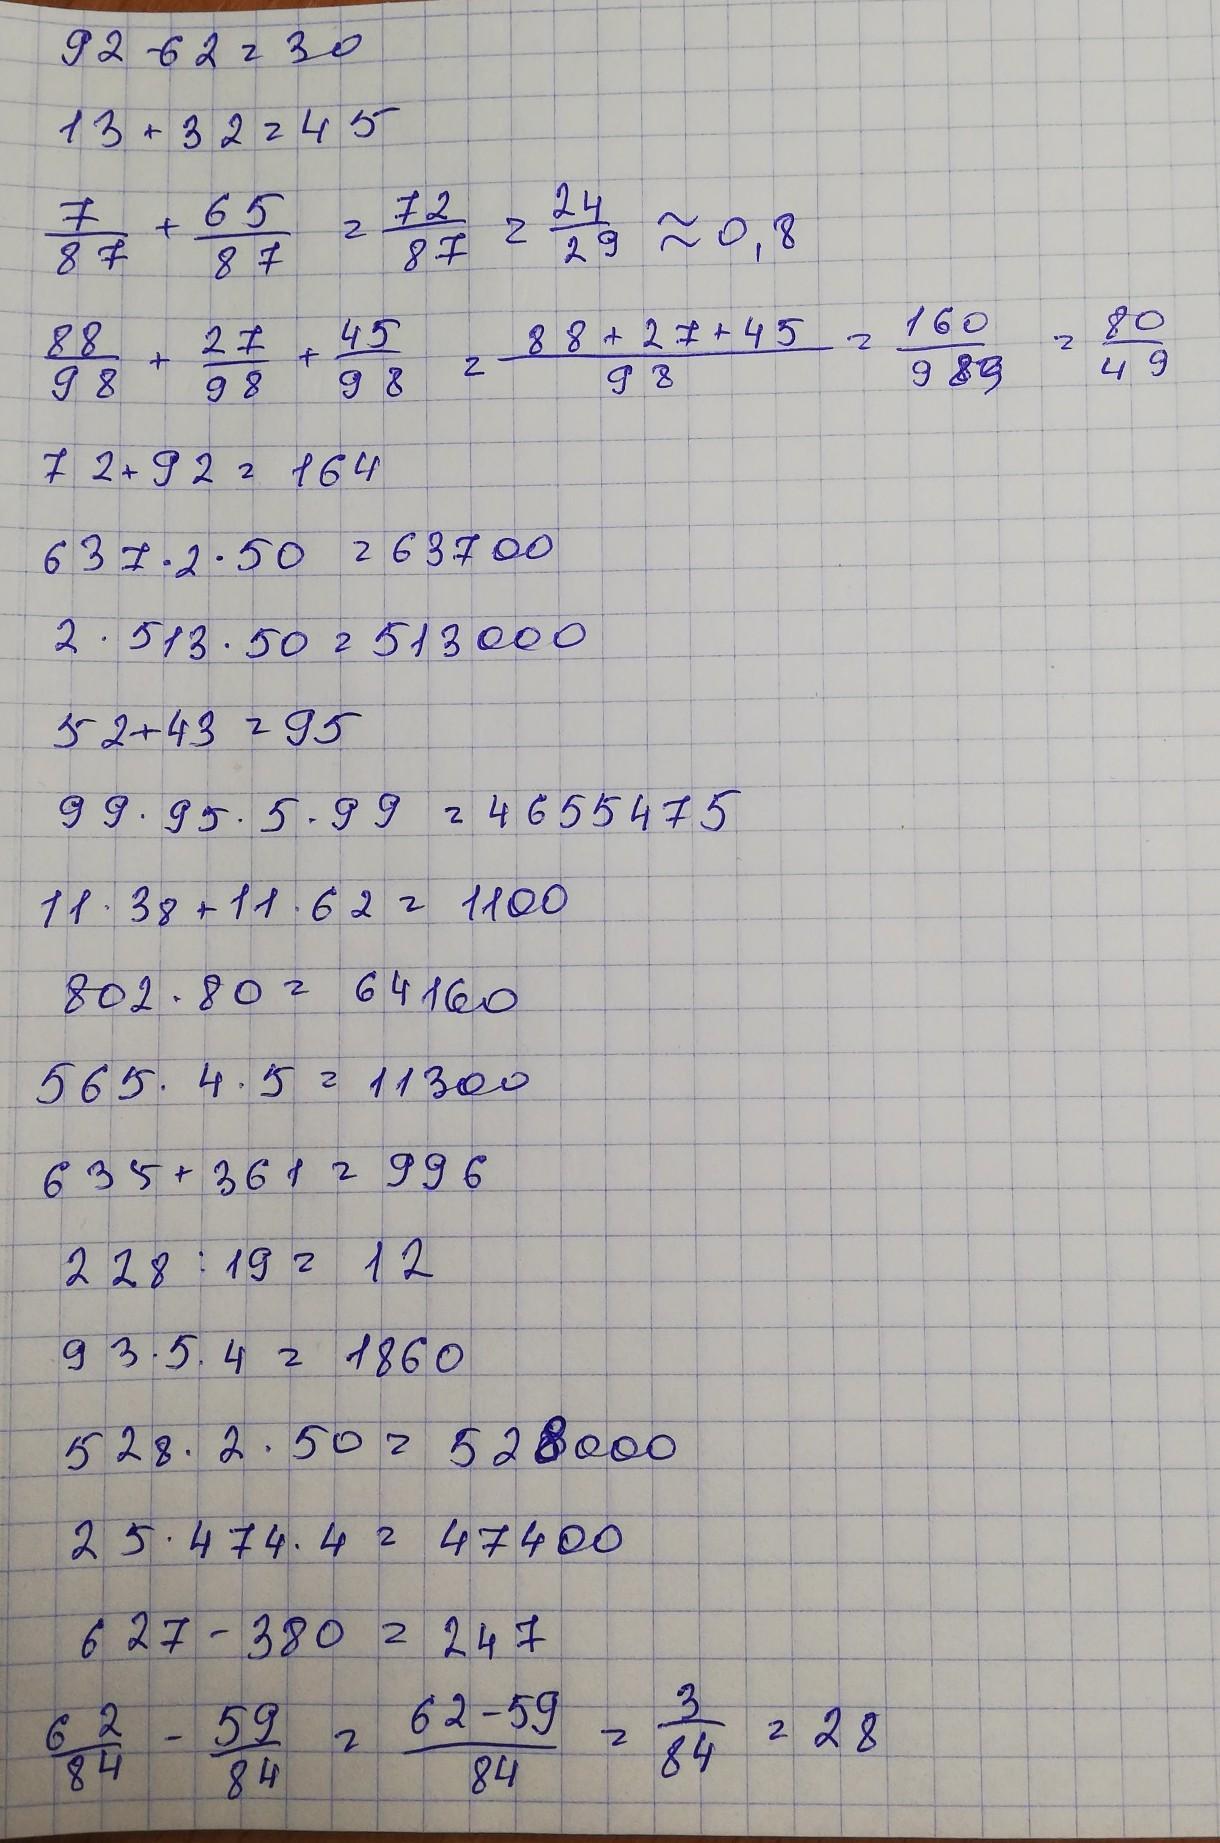 92-62=30
13+32=45
7/87 + 65/87 = 72/87 = 24/29 ≈ 0,8
88/98 + 27/98 + 45/98 = 88+27+45/98 = 160/98 = 80/49
72+92=164
637·2·50=63700
2·513·50=513000
52+43=95
99·95·5·99=4655475
11·38+11·62=1100
802·80=64160
565·4·5=11300
635+361=996
228:19=12
93·5·4=1860
528·2·50=528000
25·474·4=47400
627-380=247
62/84 - 59/84 = 62-59/84 = 3/84 = 28